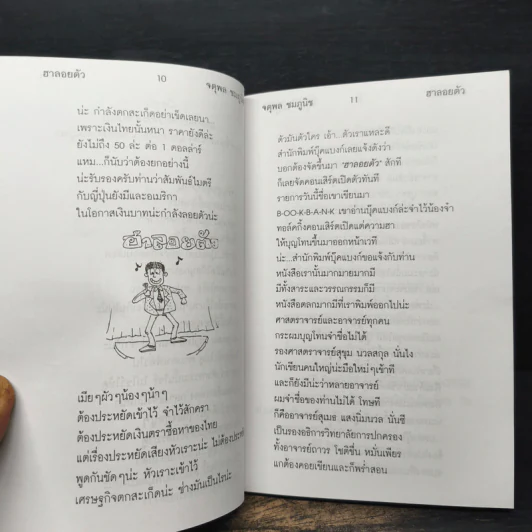 ฮาลอยตัว 10 จตุพล ชมภูนิช
น่ะ กำลังตกสะเก็ดอย่าเช็ดเลยนา...
เพราะเงินไทยนั้นหนา ราคายังดีล่ะ
ยังไม่ถึง 50 ล่ะ ต่อ 1 ดอลล่าร์
แหม...ก็นับว่าต้องยกอย่างนี้
น่ะรับรองครับท่านว่าสัมพันธ์ไมตรี
กับญี่ปุ่นยังมีและอเมริกา
ในโอกาสเงินบาทน่ะกำลังลอยตัวน่ะ
ฮาลอยตัว
เมียๆผัวๆน้องๆน้าๆ
ต้องประหยัดเข้าไว้ จำไว้สักครา
ต้องประหยัดเงินตราซื้อหาของไทย
แต่เรื่องประหยัดเสียงหัวเราะน่ะ ไม่ต้องประหยัด
พูดกันชัดๆน่ะ หัวเราะเข้าไว้
เศรษฐกิจตกสะเก็ดน่ะ ช่างมันเป็นไรน่ะ
จตุพล ชมภูนิช 11 ฮาลอยตัว
ตัวมันตัวใคร เอ้า...ตัวเราแหละดี
สำนักพิมพ์บุ๊คแบงก์เลยแจ้งดังว่า
บอกต้องจัดขึ้นมา 'ฮาลอยตัว' สักที
ก็เลยจัดคอนเสิร์ตเปิดตัวทันที
รายการวันนี้ชื่อเขาเขียนมา
B-OO-K-B-A-N-K เขาอ่านบุ๊คแบงก์ล่ะจำไว้น้องจ๋า
ทอล์คกิ้งคอนเสิร์ตเปิดแต่ความฮา
ให้บุญโทนขึ้นมาออกหน้าเวที
น่ะ...สำนักพิมพ์บุ๊คแบงก์ขอแจ้งกับท่าน
หนังสือเรานั้นมากมายมากมี
มีทั้งสาระและวรรณกรรมก็มี
หนังสือตลกมากมีที่เราพิมพ์ออกไปน่ะ
ศาสตราจารย์และอาจารย์ทุกคน
กระผมบุญโทนจำชื่อไม่ได้
รองศาสตราจารย์สุขุม นวลสกุล นั่นไง
นักเขียนคนใหญ่น่ะมือใหม่ๆเข้าที
และก็ยังมีน่ะว่าหลายอาจารย์
ผมจำชื่อของท่านไม่ได้ โทษที
ก็คืออาจารย์สุเมธ แสงนิ่มนวล นั่นซี
เป็นรองอธิการวิทยาลัยการปกครอง
ทั้งอาจารย์ถาวร โชติชื่น หมั่นเพียร
แกต้องคอยเขียนและก็พร่ำสอน